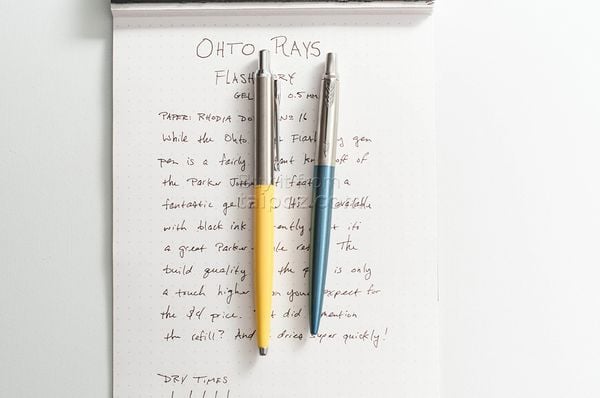 OHTO RAYS
FLASH DRY
GEL 0.5 MM
PAPER: RHODIA No 16
While the Ohto Flash gel
pen is a fairly off of
the Parker a
fantastic
with black ink it's
a great Parker The
build quality the is only
a touch higher expect for
the $4 price. did mention
the refill? And dries super quickly!
DRY TIMES